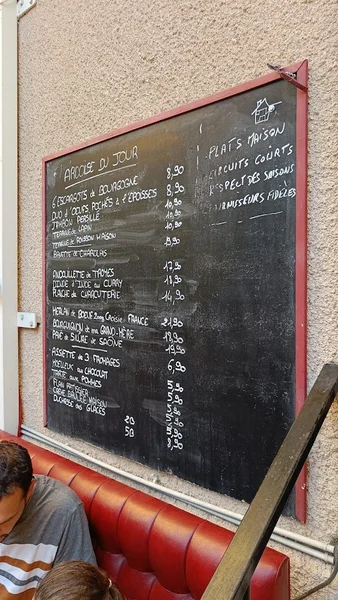 ARDOISE DU JOUR
6 ESCARGOTS de BOURGOGNE 8,90
DUO d'OEUFS POCHÉS à l'EPOISSES 8,90
JAMBON PERSILLÉ 10,90
TERRINE de LAPIN 10,90
TERRINE de MAISON 10,90
BAVETTE de CHAROLAIS 19,90
ANDOUILLETTE de TROYES 17,90
DINDE au CURRY 18,90
PLANCHE de CHARCUTERIE 14,90
MERLAN de BOEUF FRANCE 21,90
BOURGUIGNON de ma GRAND-MÈRE 19,90
PAVÉ de SILURE de SAÔNE 19,90
ASSIETTE de 3 FROMAGES 6,90
MOELLEUX au CHOCOLAT 5,90
TARTE aux POMMES 5,90
FLAN PATISSIER 5,90
CRÈME BRULÉE MAISON
DUCHESSE des GLACES
2B
5B 8,90
PLATS MAISON
CIRCUITS COURTS
RESPECT DES SAISONS
FOURNISSEURS FIDÈLES